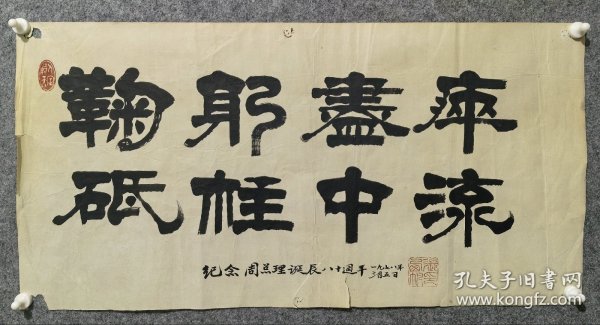 鞠躬盡瘁
砥柱中流
纪念周总理诞辰八十週年
一九七八年
三月五日
孔夫子旧书网
www.kongfz.com